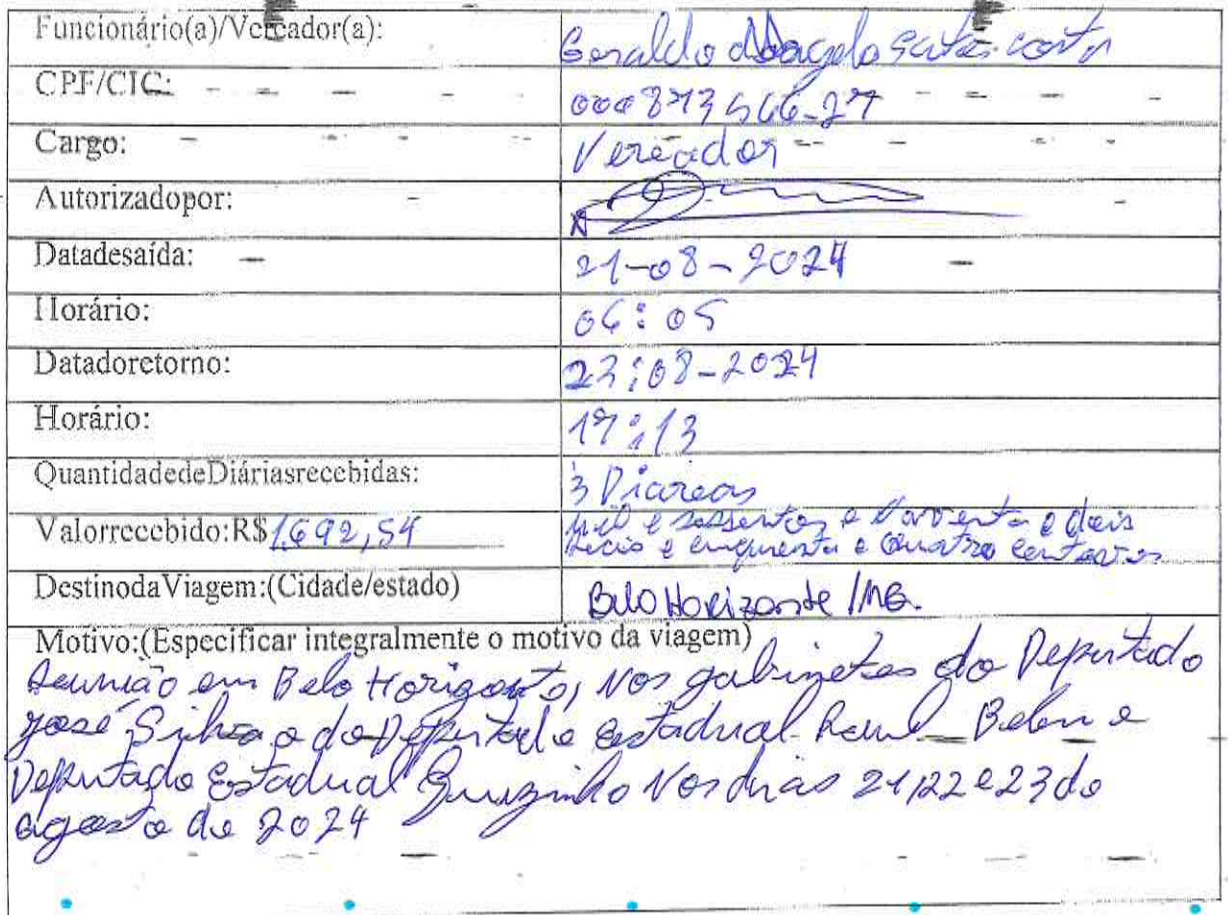 Funcionário(a)/Vereador(a): Geraldo
CPF/CIC:
Cargo: Vereador
Autorizadopor:
Datadesaída: 21-08-2024
Horário: 06:05
Datadoretorno: 23:08-2024
Horário: 17:13
QuantidadedeDiáriasrecebidas: 3 Diareas
Valorrecebido:R$1,692,54 mil e e e dois
e e quatro centavos
DestinodaViagem:(Cidade/estado) Belo Horizonte/MG.
Motivo:(Especificar integralmente o motivo da viagem)
Reunião em Belo Horizonte, Nos gabinetes do Deputado
José Silva e do Deputado estadual Raul Belem e
Deputado Estadual Nos dias 21,22 e 23 de
agosto de 2024